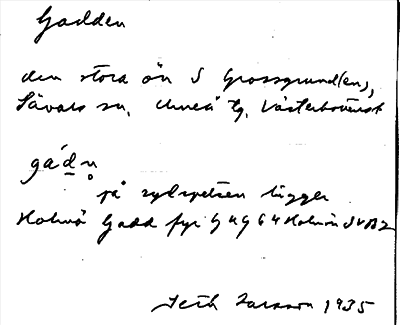 Gadden
den stora ön S Grossgrund(en),
Sävars sn, Umeå tg, Västerbotten
gádn
på sydspetsen ligger
Holmö Gadd fyr
Seth Larsson 1935